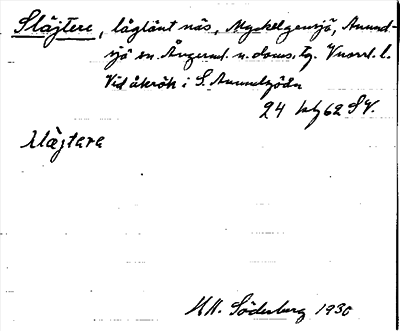 Släjtere, låglänt näs, Myckelgensjö, Anund-
sjö sn. Ångerml. n. doms. tg. Vnorrl. l.
Vid åkrök i S. Anundsjöån
24 kbl 62 SV.
släjtere
H. Söderberg 1930